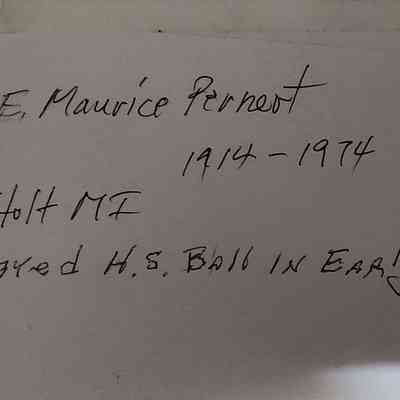 E. Maurice Pernert
1914 - 1974
Holt MI
ayed H.S. Ball in Early